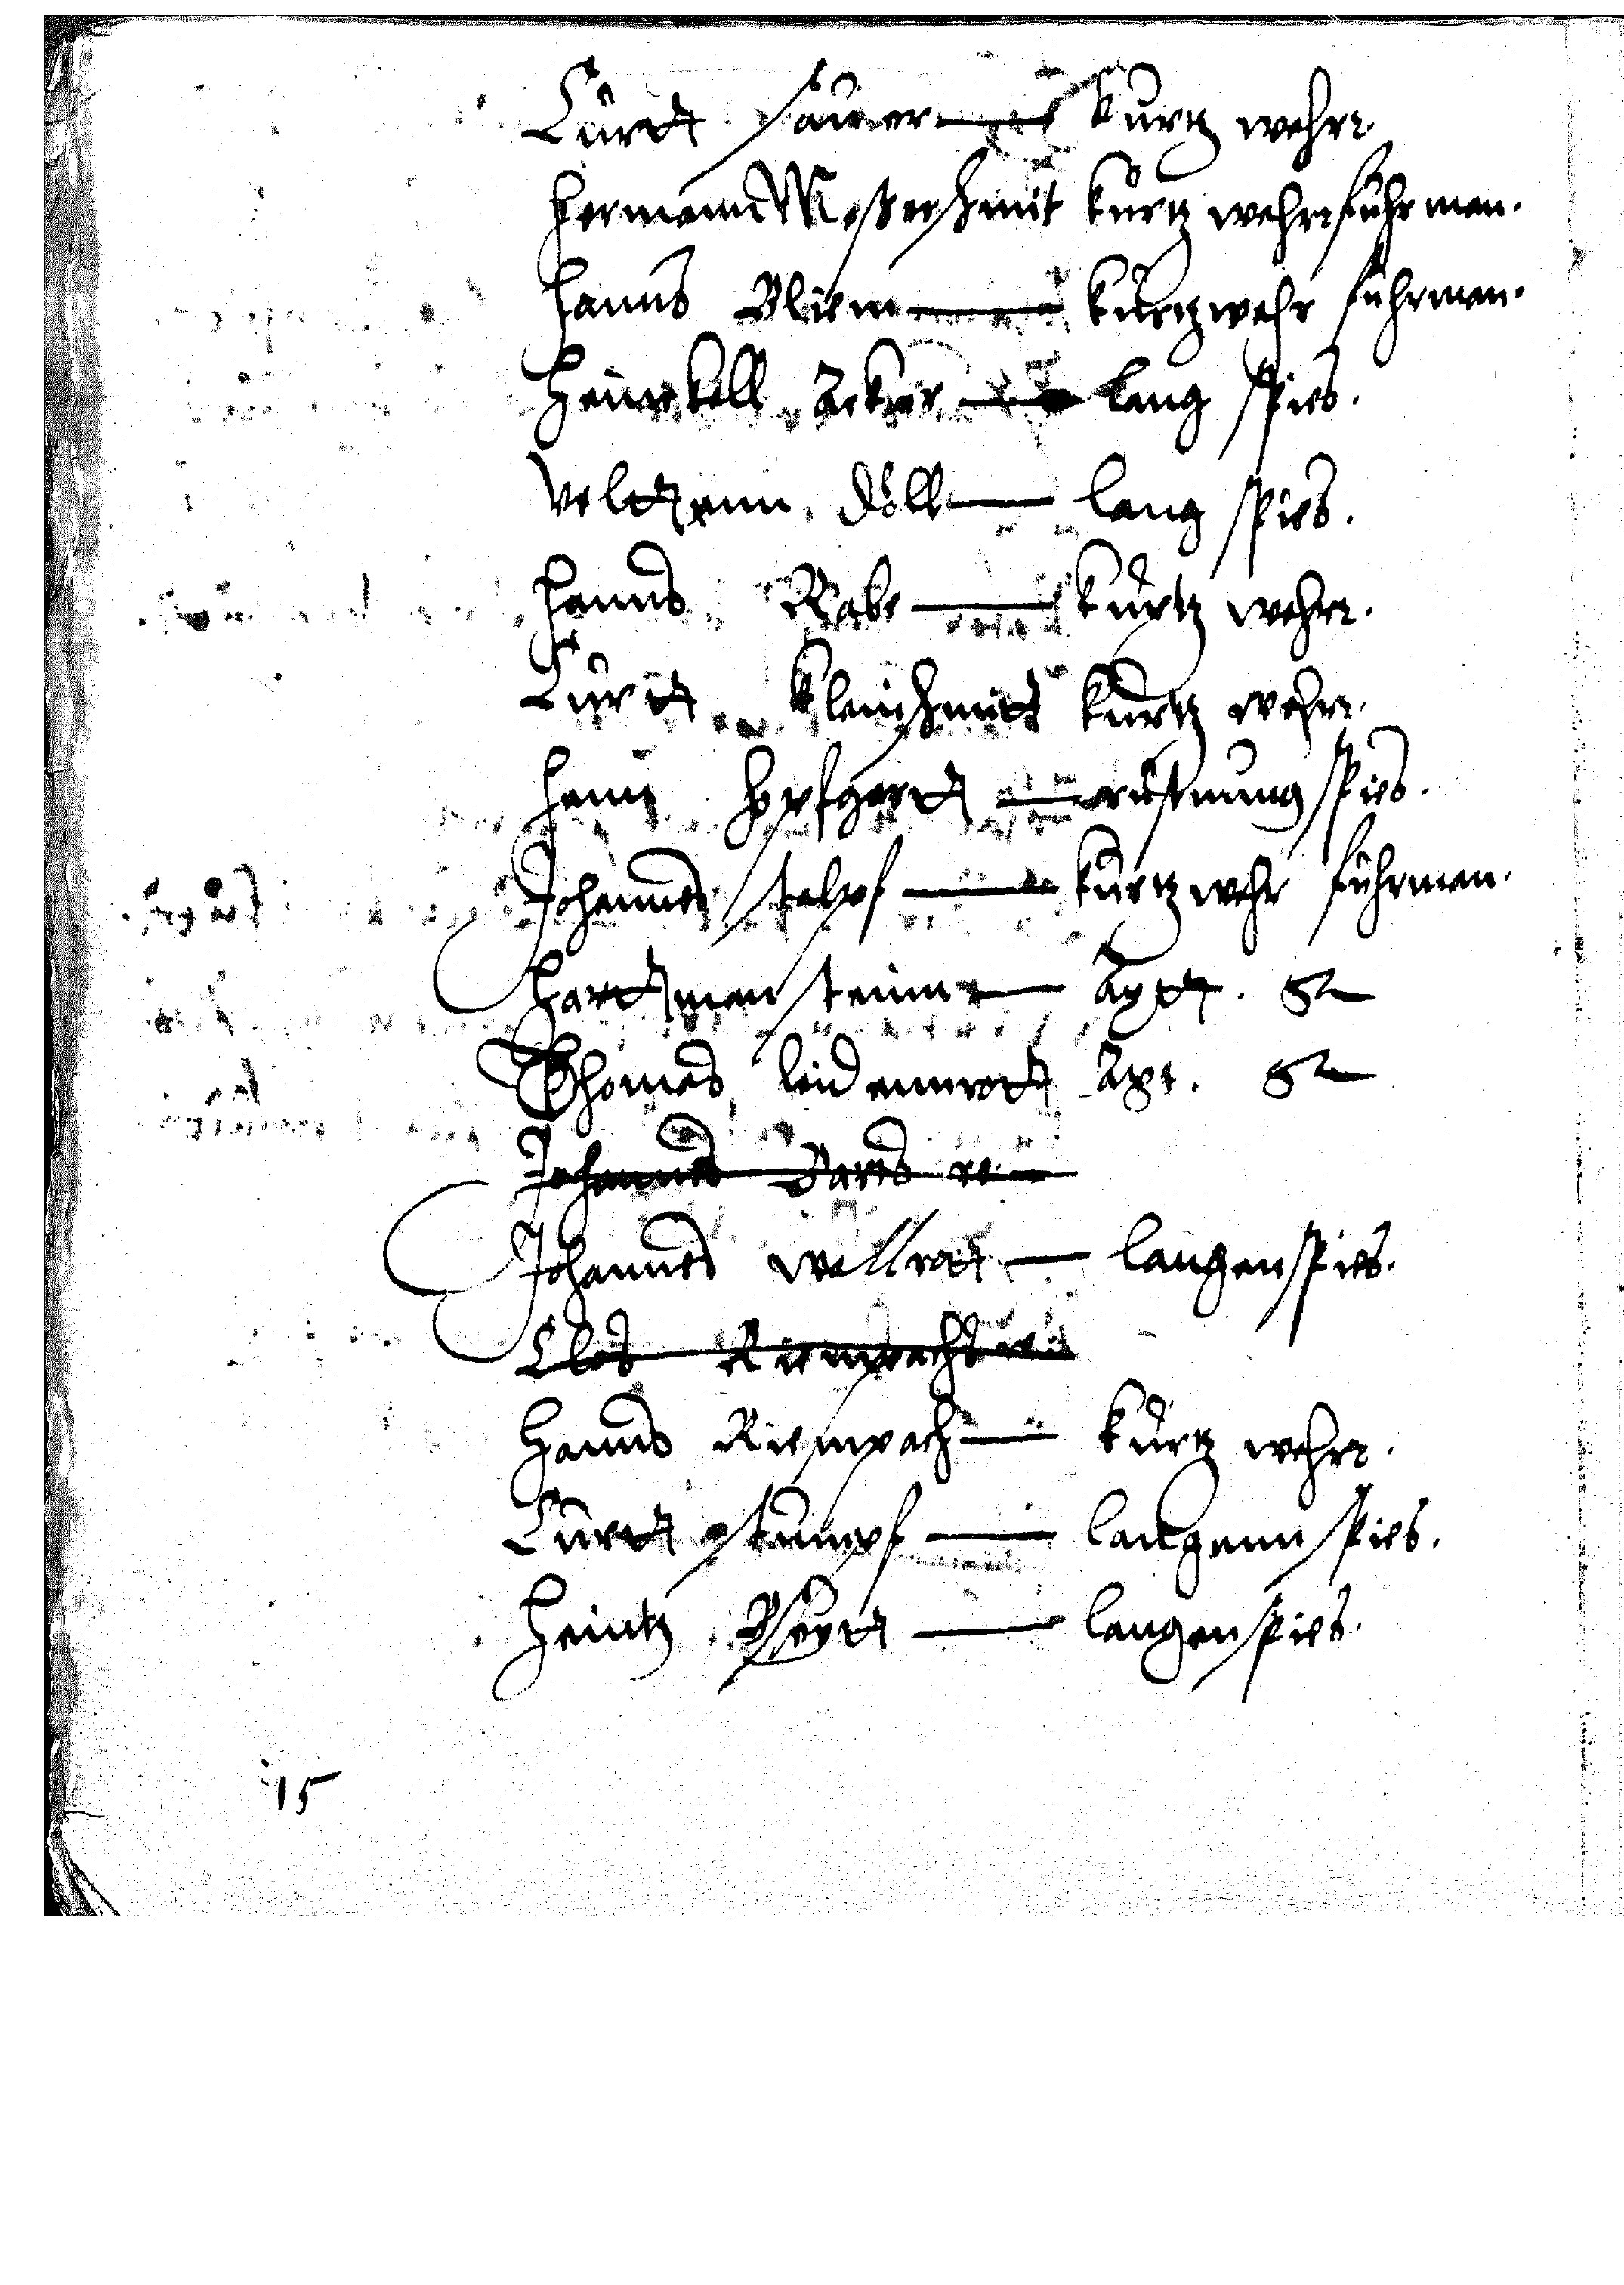 Curdt Sauer — kurtz wehr.
Hermann Messerschmit kurtz wehr fuhrman.
Hanns Bliem — kurtzwehr fuhrman.
Heinrkell Acker — lang spies.
Veltenn Döll — lang spies.
Hanns Rabe — kurtz wehr.
Curdt Kleinschmidt kurtz wehr.
Henn Hopfgardt — rüstnung spies.
Johannes — kurtzwehr fuhrman.
Hardtman — Axt.
Thomas Leidennrodt Axt.
Johannes
Johannes Wallrodt — langen spies.
Clos Riempach
Hanns Riempach — kurtz wehr.
Curdt Stumpf — langenn spies.
Heintz — langen spies.
15